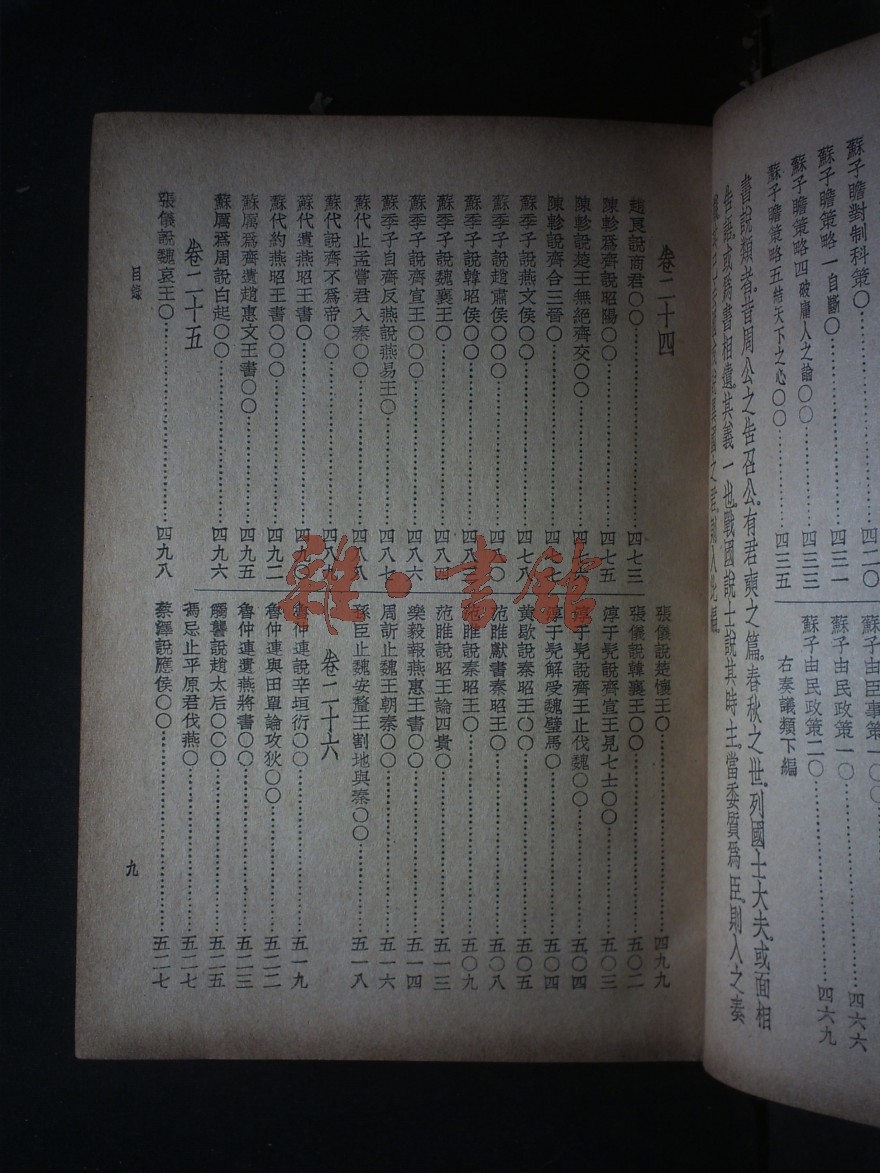 蘇子瞻對制科策〇……四二〇
蘇子瞻策略一自斷〇……四三一
蘇子瞻策略四破庸人之論〇〇……四三三
蘇子瞻策略五結天下之心〇〇……四三五
蘇子由臣事策一〇……
蘇子由民政策一〇〇……四六六
蘇子由民政策二〇……四六九
右奏議類下編
書說類者，昔周公之告召公，有君奭之篇。春秋之世，列國士大夫，或面相
告語，或爲書相遺，其義一也。戰國說士，說其時主，當委質爲臣，則入之奏
之君，則入此編。
卷二十四
趙良說商君〇〇……四七三
陳軫爲齊說昭陽〇〇……四七五
陳軫說楚王無絕齊交〇〇……四七六
陳軫說齊合三晉〇……四七七
蘇季子說燕文侯〇〇……四七八
蘇季子說趙肅侯〇〇〇……四八〇
蘇季子說韓昭侯〇〇……四八三
蘇季子說魏襄王〇〇……四八四
蘇季子說齊宣王〇〇〇……四八六
蘇季子自齊反燕說燕易王〇……四八七
蘇代止孟嘗君入秦〇〇……四八八
蘇代說齊不爲帝〇〇……四八九
蘇代遺燕昭王書〇〇……四九〇
蘇代約燕昭王書〇〇〇……四九二
蘇厲爲齊遺趙惠文王書〇〇……四九五
蘇厲爲周說白起〇〇……四九六
卷二十五
張儀說魏哀王〇……四九八
張儀說楚懷王〇……四九九
張儀說韓襄王〇〇……五〇二
淳于髡說齊宣王見七士〇〇……五〇三
淳于髡說齊王止伐魏〇〇……五〇四
淳于髡解受魏璧馬〇……五〇四
黃歇說秦昭王〇〇……五〇五
范雎獻書秦昭王〇〇……五〇八
范雎說秦昭王〇〇……五〇九
范雎說昭王論四貴〇〇……五一三
樂毅報燕惠王書〇〇……五一四
周訢止魏王朝秦〇〇……五一六
孫臣止魏安釐王割地與秦〇〇……五一八
卷二十六
魯仲連說辛垣衍〇〇……五一九
魯仲連與田單論攻狄〇〇……五二二
魯仲連遺燕將書〇〇……五二三
觸讋說趙太后〇〇〇……五二五
馮忌止平原君伐燕〇……五二七
蔡澤說應侯〇〇……五二七
目錄
九
雜·書館